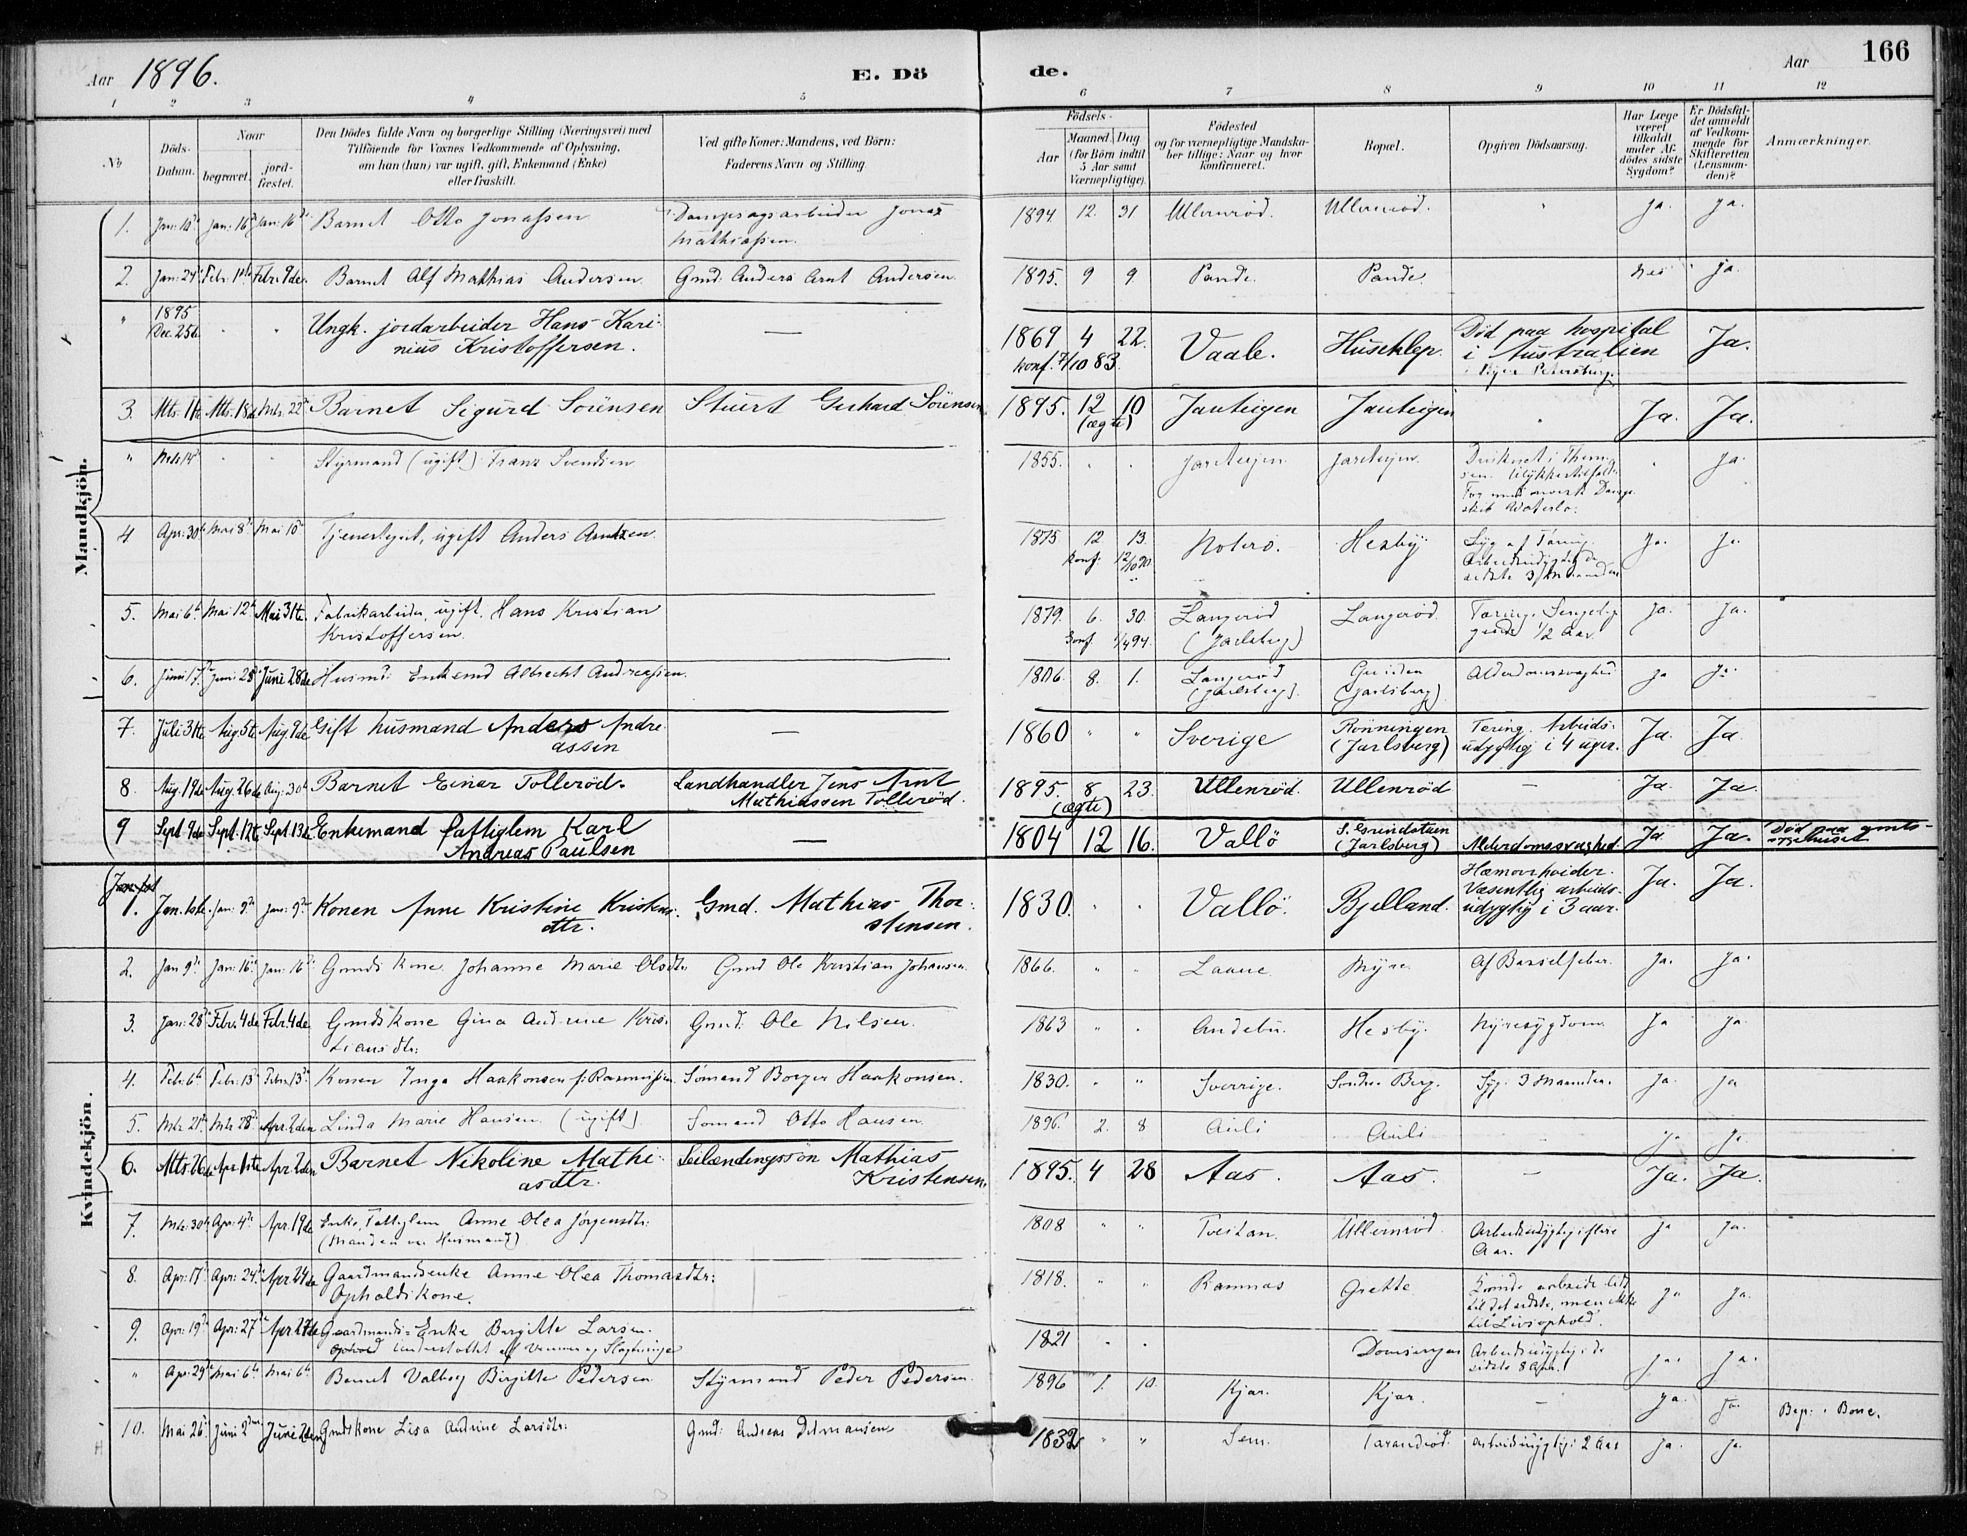 Aar 1896. E. Dö de. Aar 166
1 2 3 4 5 6 7 8 9 10 11 12
No Döds-Datum. Naar begravet. jord-fæstet. Den Dödes fulde Navn og borgerlige Stilling (Næringsvei) med Tilföiende for Voxnes Vedkommende af Oplysning, om han (hun) var ugift, gift, Enkemand (Enke) eller fraskilt. Ved gifte Koner: Mandens, ved Börn: Faderens Navn og Stilling Födsels- Aar Maaned. Dag (for Börn indtil 5 Aar samt Værnepligtige). Födested og for værnepligtige Mandskaber tillige: Naar og hvor konfirmeret. Bopæl. Opgiven Dödsaarsag. Har Læge været tilkaldt under Afdödes sidste Sygdom? Er Dödsfaldet anmeldt af Vedkommende for Skifteretten (Lensmanden)? Anmærkninger.
Mandkjön.
1. Jan: 16 Jan: 16 Barnet Otto Jonassen Dampsagsarbeider Jonas
Mathiassen. 1894. 12. 31 Ullernrød. Ullernrød. " Ja. Ja.
2. Jan: 24 Febr: 1 Febr. 9de. Barnet Alf Mathias Andersen Gmd. Anders Arnt Andersen. 1895. 9 9. Pande. Pande. Nei Ja.
" 1895 Dec. 25de. " " Ungk. jordarbeider Hans Kari-
nius Kristoffersen. — 1869 4 22. konf. 7/10 83. Vaale. Huseklep. Død paa hospital
i Australien
Petersburg. Ja.
3. Mts. 11te Mts. 18de Mts. 22 Barnet Sigurd Sørensen Stuert Gerhard Sørensen 1895. 12 10 (ægte) Jarteigen Jarteigen " Ja. Ja.
" Mts 14 " " Styrmand (ugift) Franz Svendsen 1855. " " Jarteigen Jarteigen. Druknet i Them-
sen. Ulykkestilfælde.
Waterlo. " Ja.
4 Apr: 30 Mai 8 Mai 10 Tjenestegut, ugift Anders Arntzen 1875 12 13 konf. Noterø. Hesby Syg af Tæring.
Arbeidsudygtig de
sidste 3 Maaneder Ja. Ja.
5. Mai 6 Mai 12 Mai 31te. Fabrikarbeider, ugift. Hans Kristian
Kristoffersen. 1879. 6. 30. Konf Langerød
(Jarlsberg) Langerød. Tæring. Sengelig-
gende 1/2 Aar. Ja. Ja.
6. Juni 17 Juni 28 Juni 28de Husmd: Enkemd Albrecht Andreassen. 1806. 8. 1. Langerød
(Jarlsberg). Greiden
(Jarlsberg). Alderdomssvaghed Ja Ja.
7. Juli 31te Aug. 5te Aug. 9de Gift husmand Anders Andre-
assen — 1860 " " Sverige Rønningen
(Jarlsberg) Tæring. Arbeids-
udygtig i 4 uger. Ja. Ja.
8. Aug. 19de Aug. 26de Aug. 30 Barnet Einar Tollerød. Landhandler Jens Arnt
Mathiassen Tollerød. 1895. 8 23. (ægte) Ullenrød. Ullenrød — Ja. Ja.
9 Sept. 9de Sept. 12te Sept. 13de Enkemand fattiglem Karl
Andreas Paulsen — 1804 12 16. Vallö S. Grindstuen
(Jarlsberg) Alderdomssvaghed. Ja Ja. Död paa amts-
sygehuset
Kvindekjön.
1. Jan. 1ste. Jan: 9 Jan: 9 Konen Anne Kristine Kristens-
dtr. Gmd. Mathias Thor-
stensen. 1830. " " Vallö. Bjelland. Hæmorrhoider.
Væsentlig arbeids-
udygtig i 3 aar. Ja. Ja.
2. Jan 9 Jan: 16 Jan: 16 Gmds kone Johanne Marie Olsdtr Gmd Ole Kristian Johansen. 1866. " " Laane Myre. Af Barselfeber. Ja. Ja.
3. Jan: 28 Febr. 4de Febr. 4de Gmds kone Gina Andrine Kris-
tiansdtr: Gmd: Ole Nilsen. 1863 " " Andebu. Hesby. Nyresygdom. Ja Ja.
4. Febr. 6 Febr. 13 Febr. 13 Konen Inga Haakonsen f: Rasmussen Sömand Borger Haakonsen. 1830. " " Sverrige. Søndre Berg. Syg: 3 Maaneder. Ja. Ja
5. Mts 21 Mts 28 Apr. 2den Linda Marie Hansen. (ugift) Sømand Otto Hansen. 1896. 2. 8 Auli Auli Ja. Ja.
6. Mts 26de Apr. 1ste Apr. 2den Barnet Nikoline Mathi-
asdtr. Selændingssøn Mathias
Kristensen. 1895. 4 28 Aas. Aas. — Ja. Ja.
7. Mts: 30 Apr: 4 Apr. 19de Enke, Fattiglem Anne Olea Jørgensdtr:
(Manden var Husmand) 1808 " " Tveitan. Ullernrød. Arbeidsudygtig i flere
Aar. Ja Ja.
8. Apr: 17 Apr: 24 Apr. 24de Gaardmandsenke Anne Olea Thomasdtr:
Opholdskone. 1818. " " Ramnas Grette Kunde arbeide lidt
til det sidste, men ikke
til Livsophold. Ja Ja.
9. Apr: 19 Apr: 27 Apr. 27de Gaardmands-Enke Birgitte Larsen.
understøttet af Venner og Slægtninge 1821 " " Arbeidsudygtig i de
sidste 8 Aar. Ja. Ja.
" Apr: 29 Mai 6 Mai 6 Barnet Valborg Birgitte Pedersen Styrmand Peder Pedersen. 1896 1. 10. Kjær. Kjær. — Ja. Ja. Bep: i Borre.
10. Mai 26 Juni 2 Juni 2den Gmds kone Lisa Andrine Larsdtr: Gmd: Andreas 1832 " " Sem. Arbeidsudygtig: 2 Aar Ja. Ja.